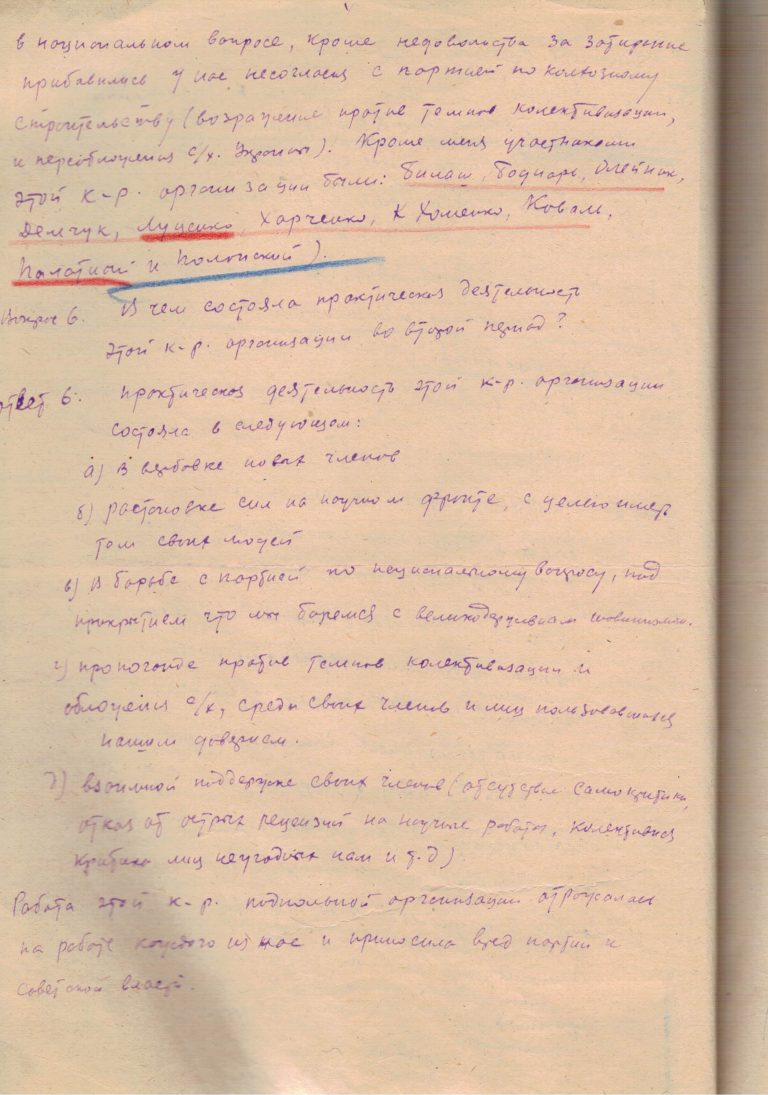 в национальном вопросе, кроме недовольства за затирание
прибавились у нас несогласия с партией по колхозному
строительству (возражение против темпов колективизации,
и переобложения с/х. Украины). Кроме меня участниками
этой к-р. организации были: Билаш, Боднарь, Олейник,
Демчук, Луценко, Харченко, К Хоменко, Коваль,
Палатной и Полонский).
Вопрос 6. В чем состояла практическая деятельность
этой к-р. организации во второй период?
Ответ 6. практическая деятельность этой к-р. организации
состояла в следующем:
а) в вербовке новых членов
б) растановке сил на научном фронте, с целею иметь
там своих людей
в) в борьбе с партией по национальному вопросу, под
прикрытием что мы боремся с великодержавным шовинизмом.
г) пропоганде против темпов колективизации и
обложения с/х, среди своих членов и лиц пользовавшихся
нашим доверием.
д) взаимной поддержке своих членов (отсутствие самокритики,
отказ от острых рецензий на научные работы, колективная
критика лиц неугодных нам и т.д)
Работа этой к-р. подпольной организации отражалась
на работе каждого из нас и приносила вред партии и
советской власти.